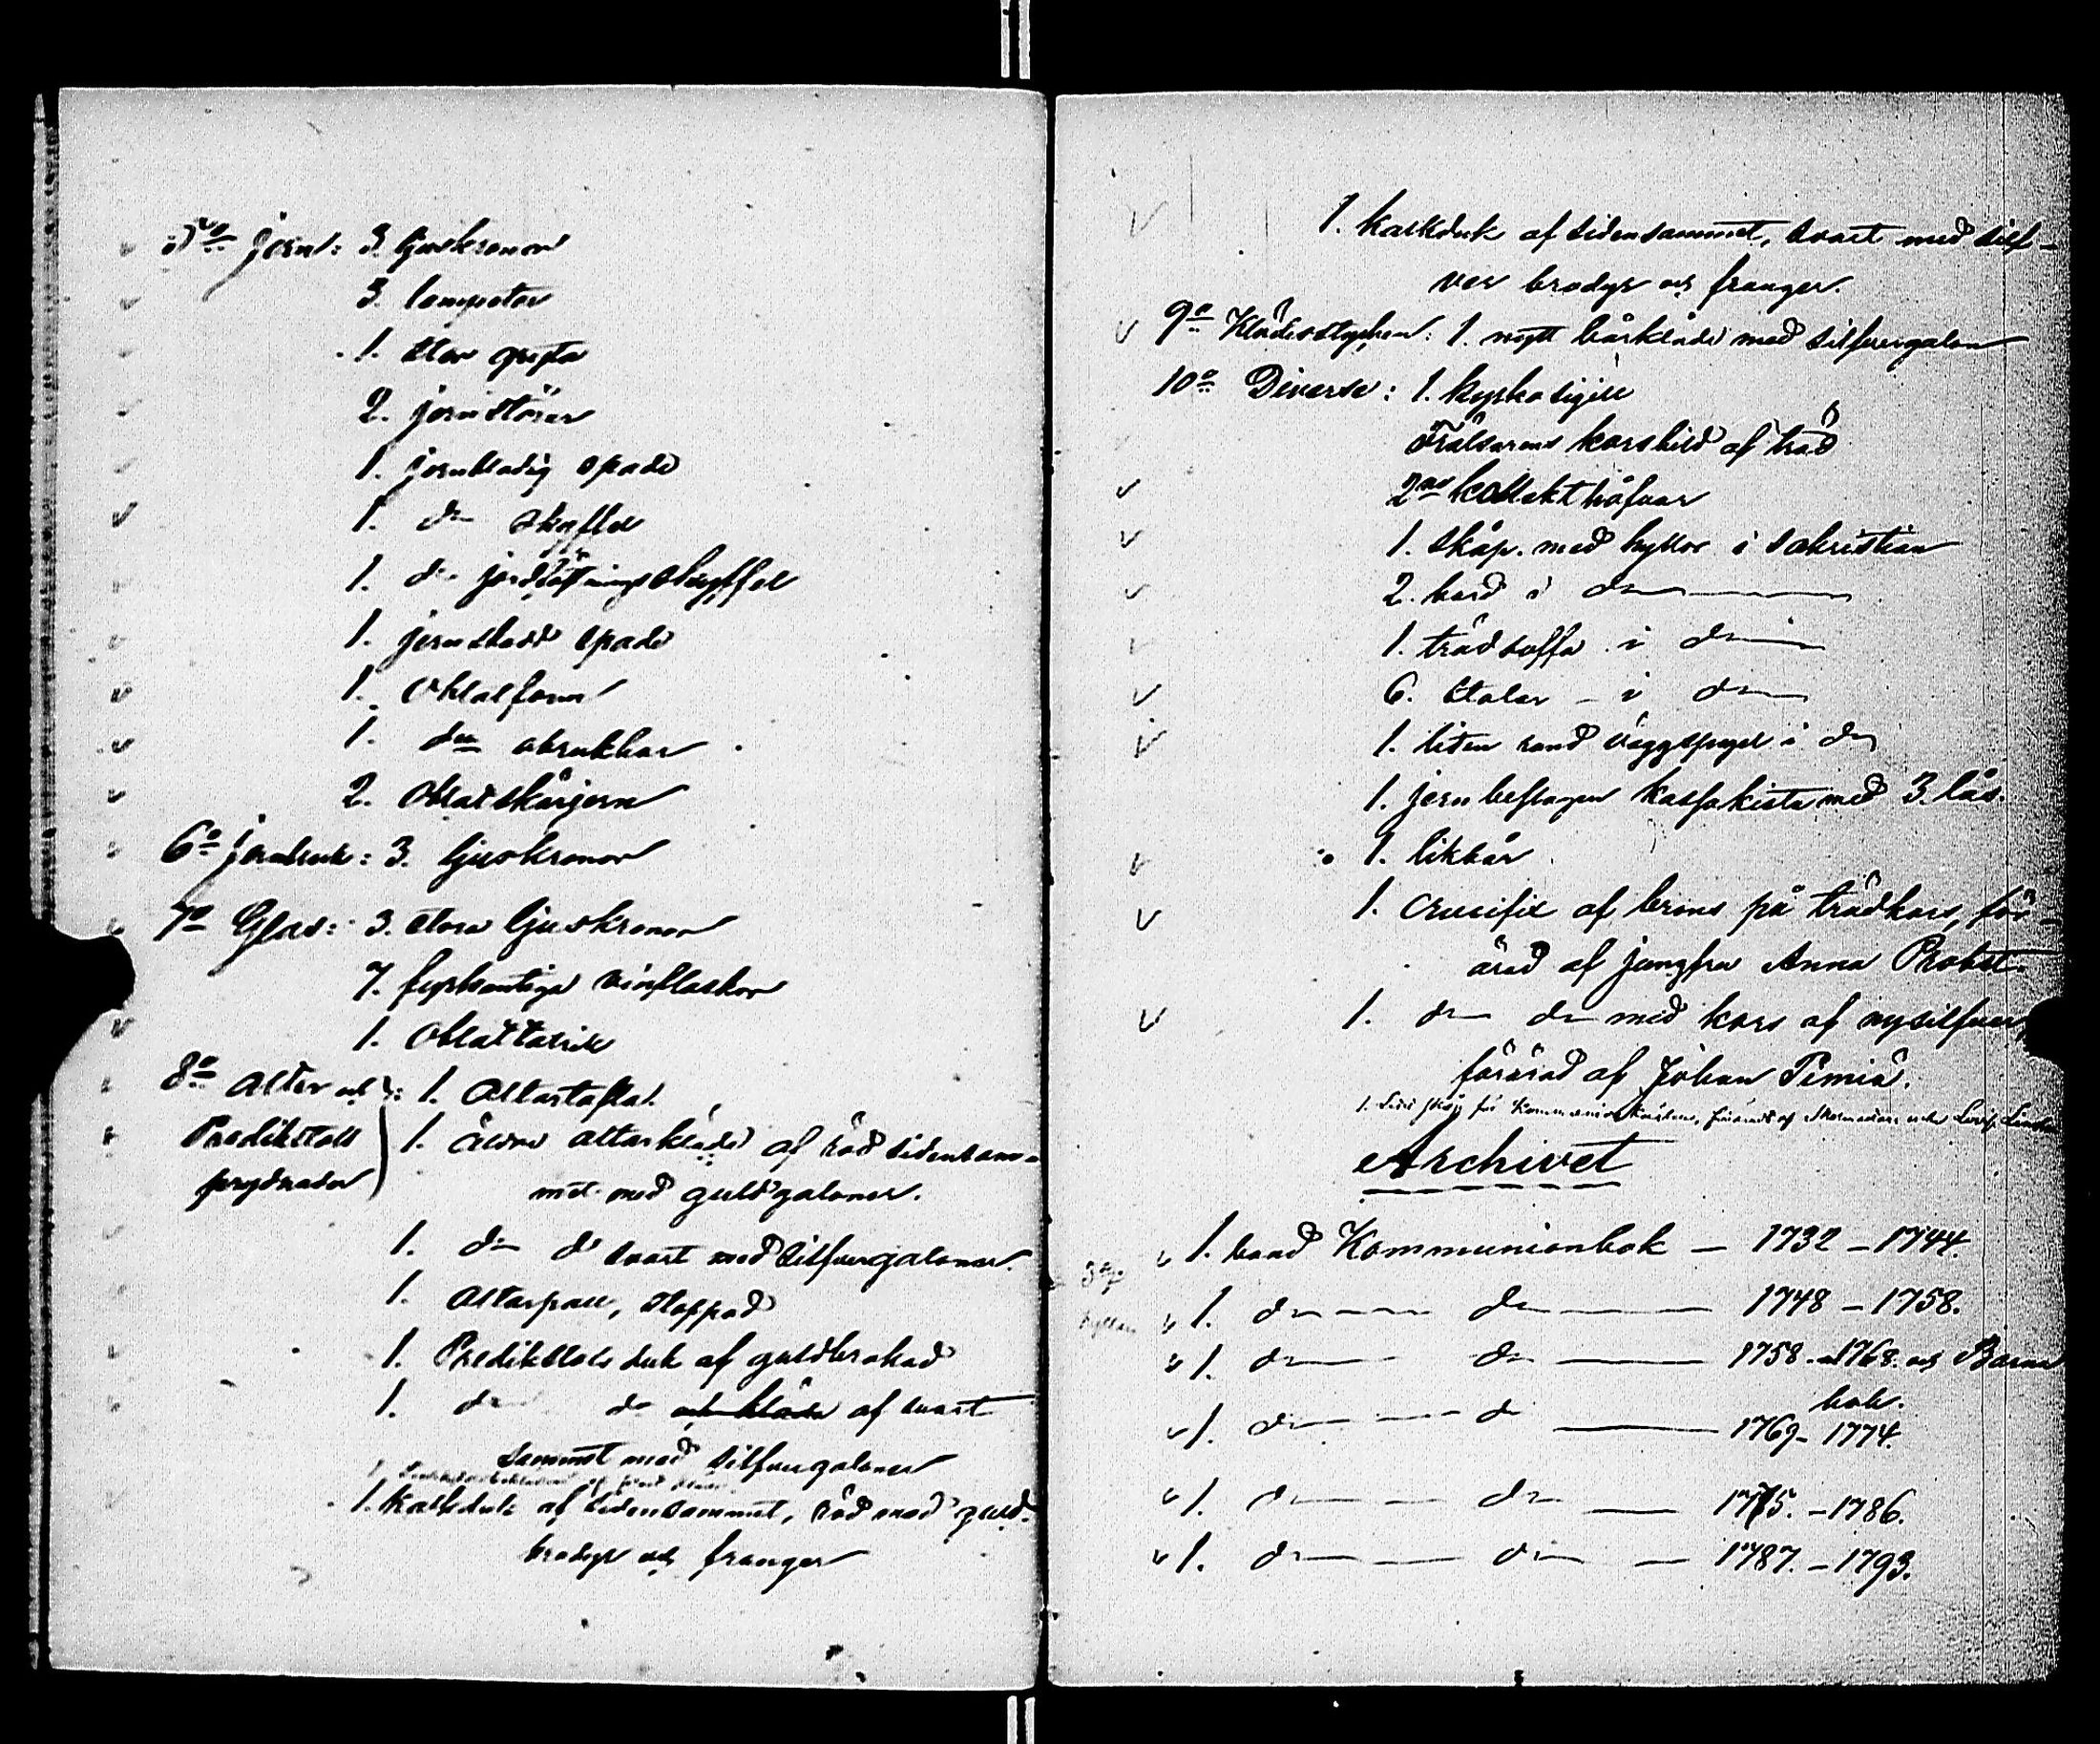 5o Jern: 3. ljuskronor
3. lampetter
1. stor gryta
2. jernstörar
1. jernbladig spade
1. do skoffel
1. do jordkastningsskoffel
1. jernskodd spade
1. Oblatform
1. do
2. Oblatskärjern
6o Jernbruk: 3. ljuskronor
7o Glas: 3. stora ljuskronor
7. fyrkantiga vinflaskor
1. Oblattallrik
8o Altar och: 1. Altartafla.
Predikstols 1. Äldre altarkläde af röd sidensam-
prydnader met med guldgaloner.
1. do do svart med silfvergaloner.
1. Altarpall, stoppad
1. Predikstols duk af guldbrokad
1. do do och kläde af svart
sammet med silfvergaloner
1. Kalkduk af sidensammet, röd med guld-
brodyr och franger
1. Kalkduk af sidensammet, svart med silf-
ver brodyr och franger.
9o Klädesstycken: 1. nytt bårkläde med silfvergalon
10o Diverse: 1. kyrkosigill
Frälsarens korsbild af träd
2ne kollekthåfvar
1. skåp med hyllor i sakristian
2. bord i do
1. trädsoffa i do
6. stolar – i do
1. liten rund väggspegel i do
1. jernbeslagen kassakista med 3. lås.
1. likbår
1. Crucifix af brons på trädkors, för-
ärad af jungfru Anna Probst.
1. do do med kors af nysilfver,
förärad af Johan Pimiä.
Archivet
1. band Kommunionbok – 1732 – 1744.
1. do do 1748 – 1758.
hyllan
1. do do 1758. – 1768. och Barna
bok.
1. do do 1769 – 1774.
1. do do 1775. – 1786.
1. do do 1787. – 1793.